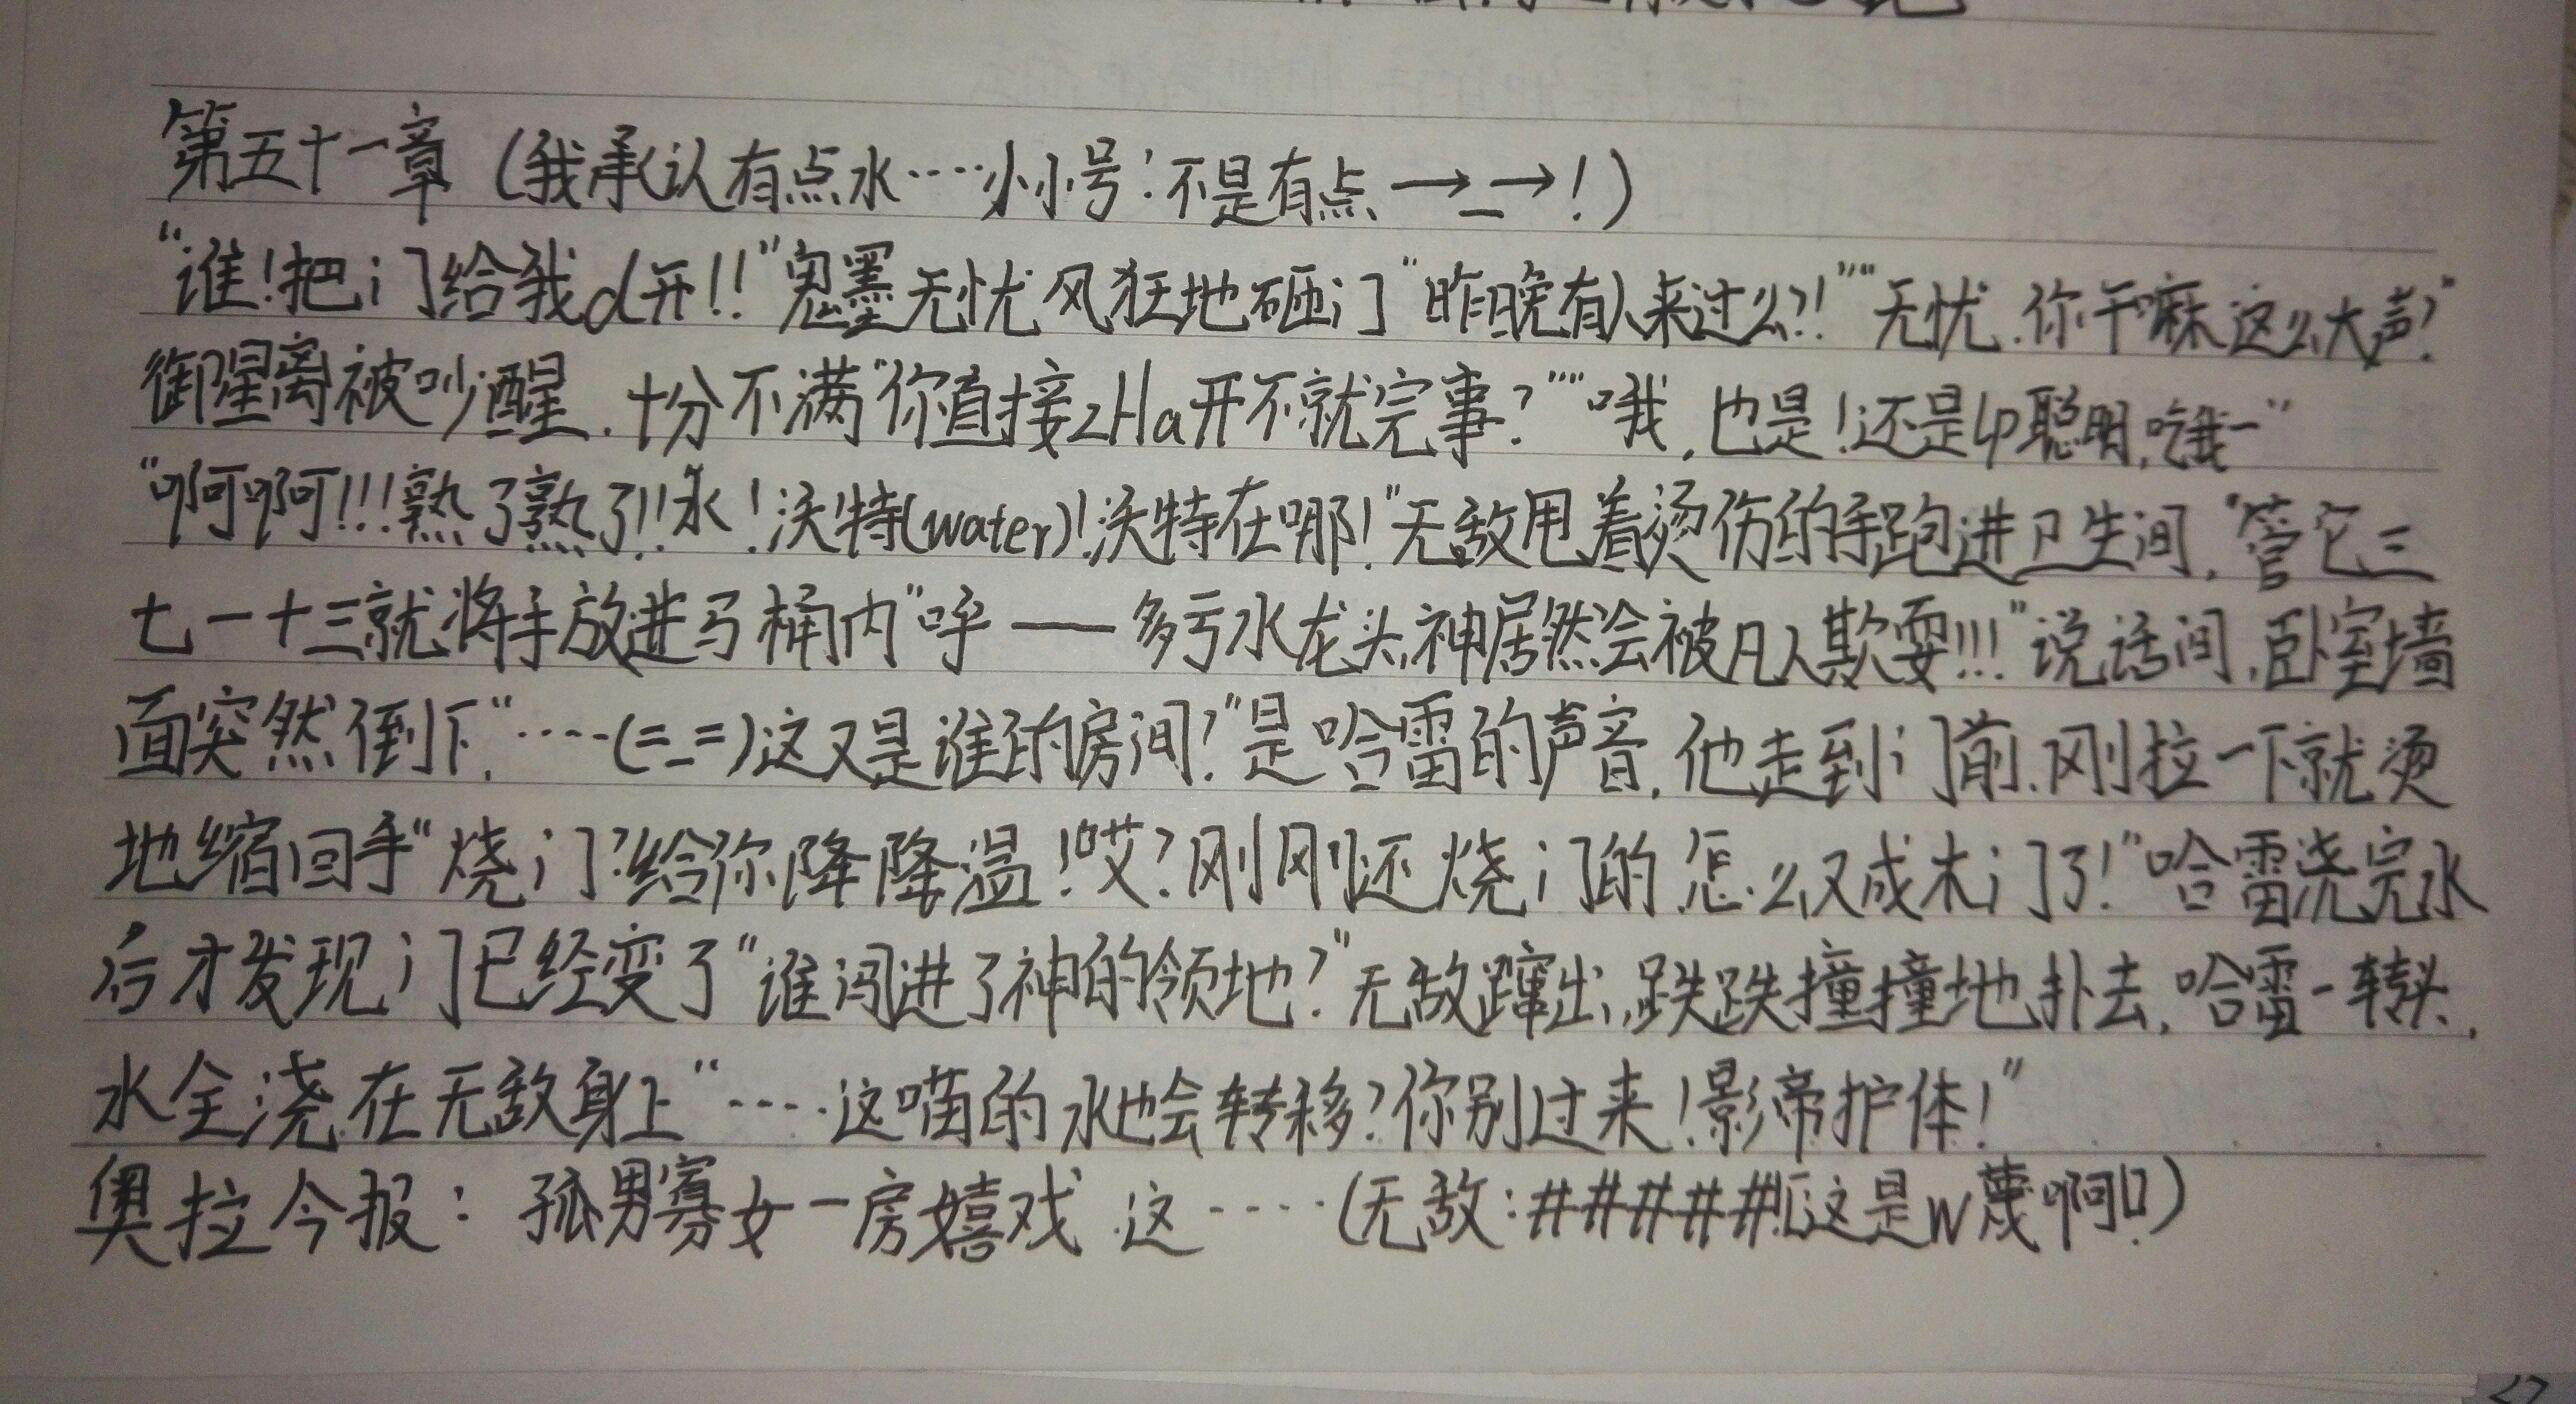 第五十一章（我承认有点水····小小号：不是有点→_→！）
“谁！把门给我d开！！”鬼墨无忧风狂地砸门“昨晚有人来过么？！”“无忧，你干嘛这么大声？”
御星离被吵醒，十分不满“你直接zHa开不就完事？”“哦，也是！还是lp聪明，吃我一”
“啊啊！！！熟了熟了！！水！沃特(water)！沃特在哪！”无敌甩着烫伤的手跑进卫生间，“管它三
七一十三就将手放进马桶内“呼——多亏水龙头，神居然会被凡人欺耍！！！”说话间，卧室墙
面突然倒下，“····（=_=）这又是谁的房间？”是哈雷的声音，他走到门前，刚拉一下就烫
地缩回手“烧门？给你降降温！哎？刚刚还烧门的怎么又成木门了！”哈雷浇完水
后才发现门已经变了“谁闯进了神的领地？”无敌蹿出，跌跌撞撞地扑去，哈雷一转头，
水全浇在无敌身上“····这喵的水也会转移？你别过来！影帝护体！”
奥拉今报：孤男寡女一房嬉戏 这····（无敌：#####![这是w蔑啊!]）